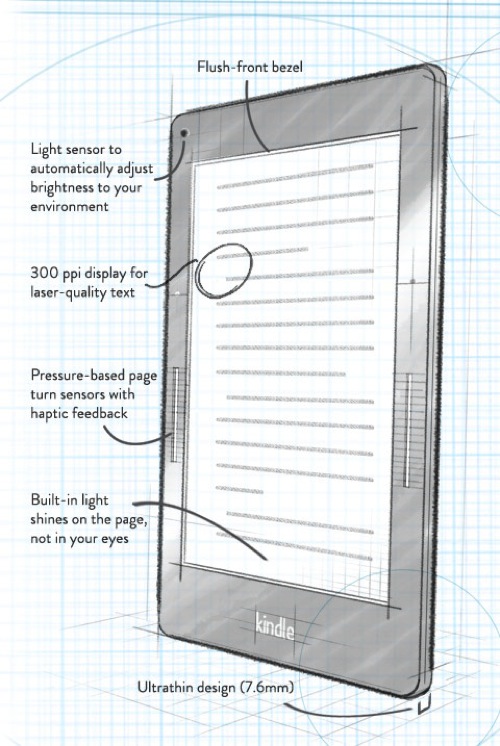 Flush-front bezel
Light sensor to
automatically adjust
brightness to your
environment
300 ppi display for
laser-quality text
Pressure-based page
turn sensors with
haptic feedback
Built-in light
shines on the page,
not in your eyes
kindle
Ultrathin design (7.6mm)